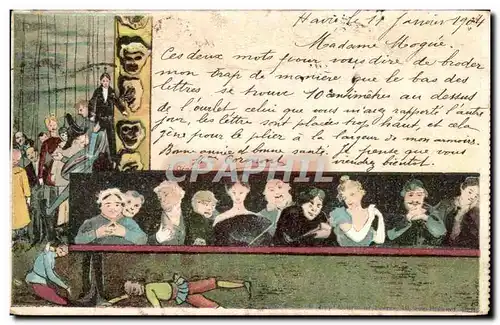 Havre le 11 Janvier 1904
Madame Moguée.
Ces deux mots pour vous dire de broder
mon drap de manière que le bas des
lettres se trouve 10 centimètres au dessus
de l'ourlet celui que vous m'avez rapporté l'autre
jour, les lettre sont placés trop haut, et cela
gène pour le plier à la largeur de mon armoire.
Bonne année et bonne santé. Je pense que vous
viendrez bientôt.
CPArama.com